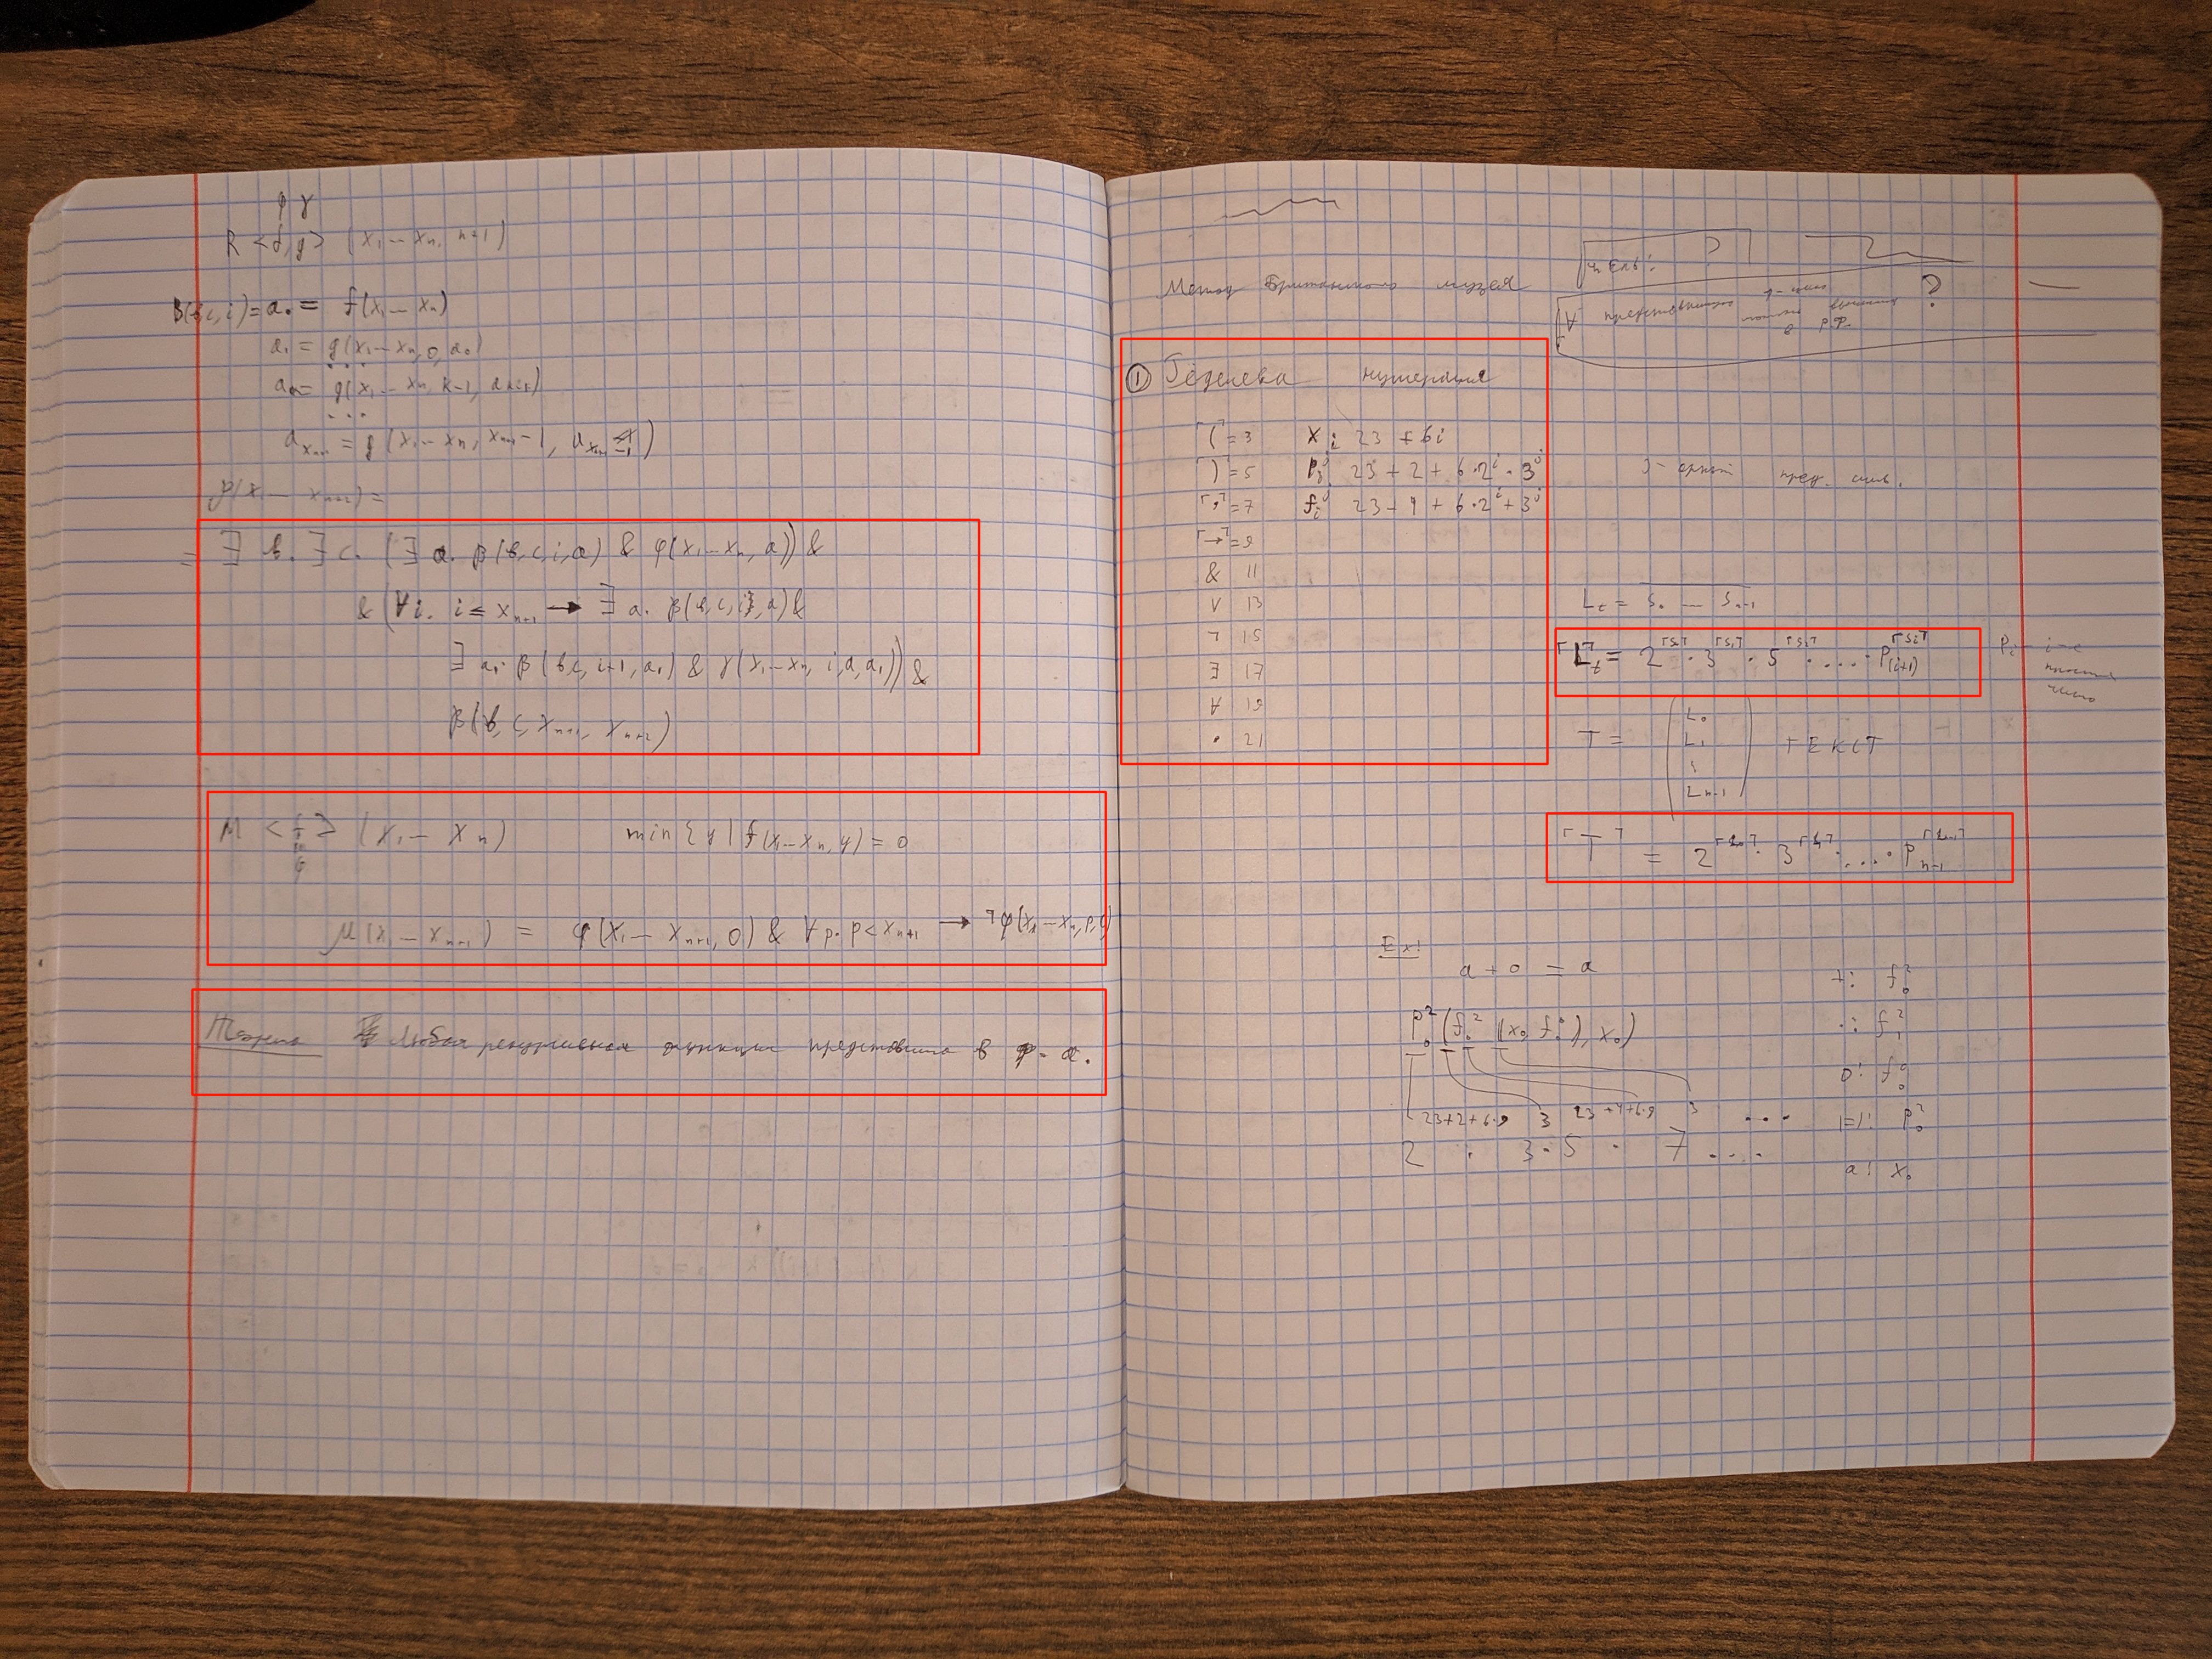 φ γ
R <f,g> (x₁ — xₙ, n+1)
B(b,c,i) = a₀ = f(x₁ — xₙ)
a₁ = g(x₁ — xₙ, 0, a₀)
. . .
aₖ = g(x₁ — xₙ, k-1, aₖ₋₁)
. . .
aₓₙ₊₁ = g(x₁ — xₙ, xₙ₊₁ - 1, aₓₙ₊₁₋₁)
ρ(x₁ — xₙ₊₂) =
= ∃ b. ∃ c. (∃ a. β(b, c, i, a) & φ(x₁ — xₙ, a)) &
& (∀i. i ≤ xₙ₊₁ → ∃ a. β(b, c, i, a) &
∃ a₁. β (b, c, i+1, a₁) & γ(x₁ — xₙ, i, a, a₁)) &
β(b, c, xₙ₊₁, xₙ₊₂)
M < f > (x₁ — xₙ) min { y | f(x₁ — xₙ, y) = 0
φ
μ(x₁ — xₙ₊₁) = φ(x₁ — xₙ₊₁, 0) & ∀p. p < xₙ₊₁ → ¬φ(x₁ — xₙ, p, 0)
Теорема Любая рекурсивная функция представима в ф. а.
Метод Британского музея
Цель:
?
① Гёделева нумерация
⌜(⌝ = 3 xᵢ 23 + 6i
⌜)⌝ = 5 Pᵢʲ 23 + 2 + 6·2ⁱ·3ʲ
⌜,⌝ = 7 fᵢʲ 23 + 4 + 6·2ⁱ + 3ʲ
j - арный пред. симв.
⌜→⌝ = 9
& 11
∨ 13
¬ 15
∃ 17
∀ 19
. 21
Lₜ = S₀ — Sₙ₋₁
⌜Lₜ⌝ = 2^⌜S₀⌝ · 3^⌜S₁⌝ · 5^⌜S₂⌝ · .... · P₍ᵢ₊₁₎^⌜Sᵢ⌝
Pᵢ - i-е
простое
число
T = ( L₀ L₁ ⋮ Lₙ₋₁ ) ТЕКСТ
⌜T⌝ = 2^⌜L₀⌝ · 3^⌜L₁⌝ · .... · Pₙ₋₁^⌜Lₙ₋₁⌝
Ex:
a + 0 = a
+: f₀²
P₀² (f₀² (x₀ f₀⁰), x₀)
·: f₁²
0: f₀⁰
23+2+6·9 3 23+4+6·9 3 ...
(=): P₀²
2 · 3 · 5 · 7 ....
a: x₀